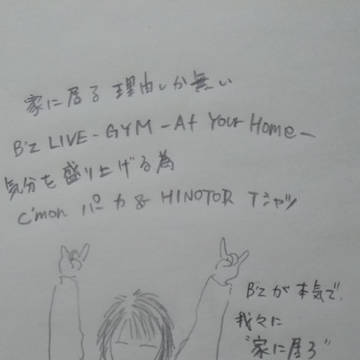 家に居る理由しか無い
B'z LIVE-GYM -At Your Home-
気分を盛り上げる為
C'mon パーカ & HINOTOR Tシャツ
B'zが本気で
我々に
"家に居ろ"